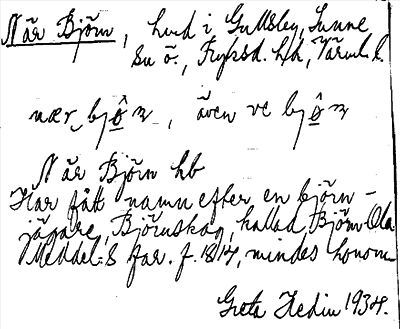 När Björn, hvd i Gullsby, Sunne
sn ö., Fryksd. hd, Värml. l.
nær bjö̂n, även ve bjö̂n
När Björn hb
Har fått namn efter en björn-
jägare, Björnskog, kallad Björn-Ola.
Meddel:s far. f. 1817, mindes honom
Greta Hedin 1934.